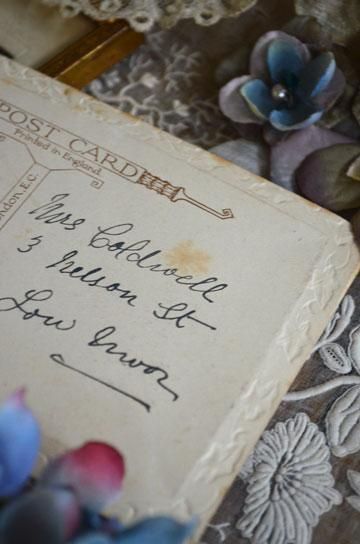 POST CARD
Printed in England.
London. E.C.
Mrs Coldwell
3 Nelson St
Low Moor